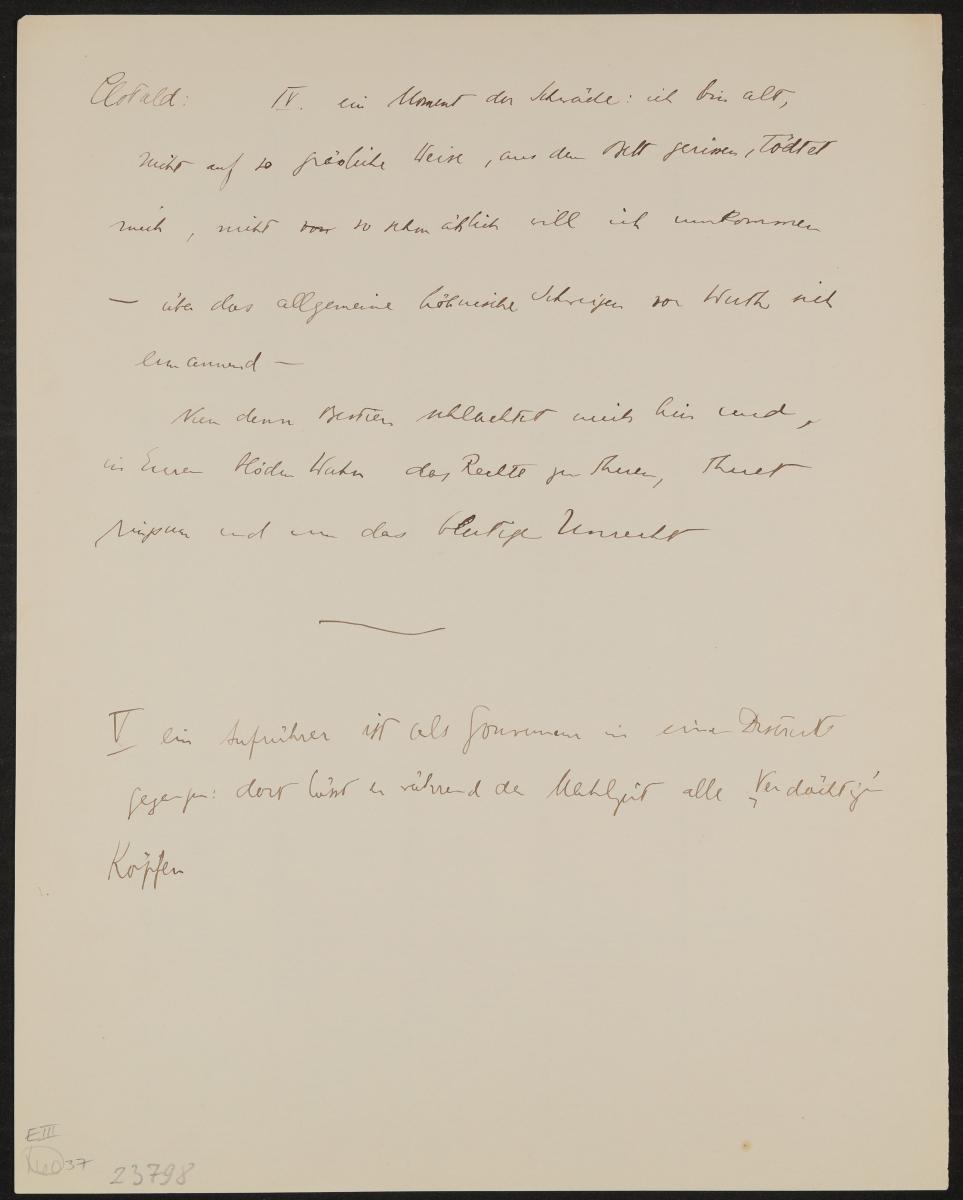 Clotald: IV. ein Moment der Schwäche: ich bin alt,
nicht auf so grässliche Weise, aus dem Bett gerissen, tödtet
mich, nicht so schmählich will ich umkommen
— über das allgemeine höhnische Schweigen vor Wuth sich
ermannend —
Nun denn Bestien schlachtet mich hin und,
in Eurem blöden Wahn das Rechte zu thuen, thuet
ringsum und um das blutige Unrecht
V ein Aufrührer ist als Gouverneur in einen District
gegangen: dort lässt er während der Mahlzeit alle Verdächtigen
Köpfen
E III
37
23798